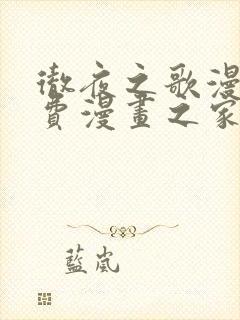 徹夜之歌漫
費漫畫之家
藍嵐